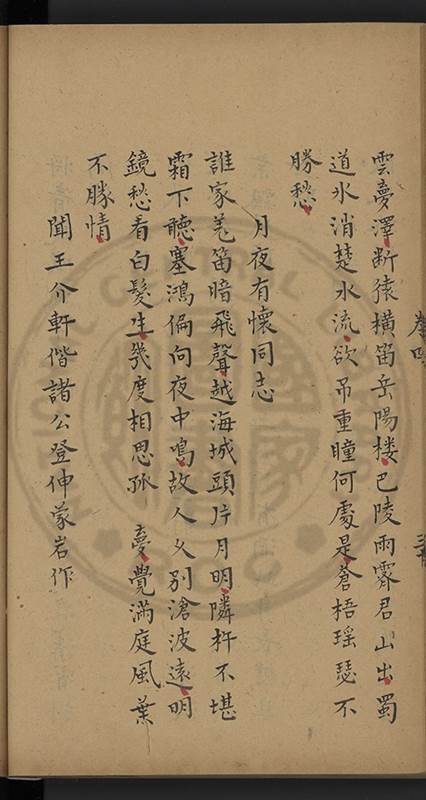 雲夢澤断猿橫笛岳陽楼巴陵雨霽君山出蜀
道水消楚水流欲吊重瞳何處是倉梧瑶瑟不
勝愁
月夜有懷同志
誰家羌笛暗飛聲越海城頭片月明隣杵不堪
霜下聴塞鴻偏向夜中鳴故人久别滄波遠明
鏡愁看白髮生幾度相思孤 夢覺滿庭風葉
不勝情
聞王介軒偕諸公登伸蒙岩作